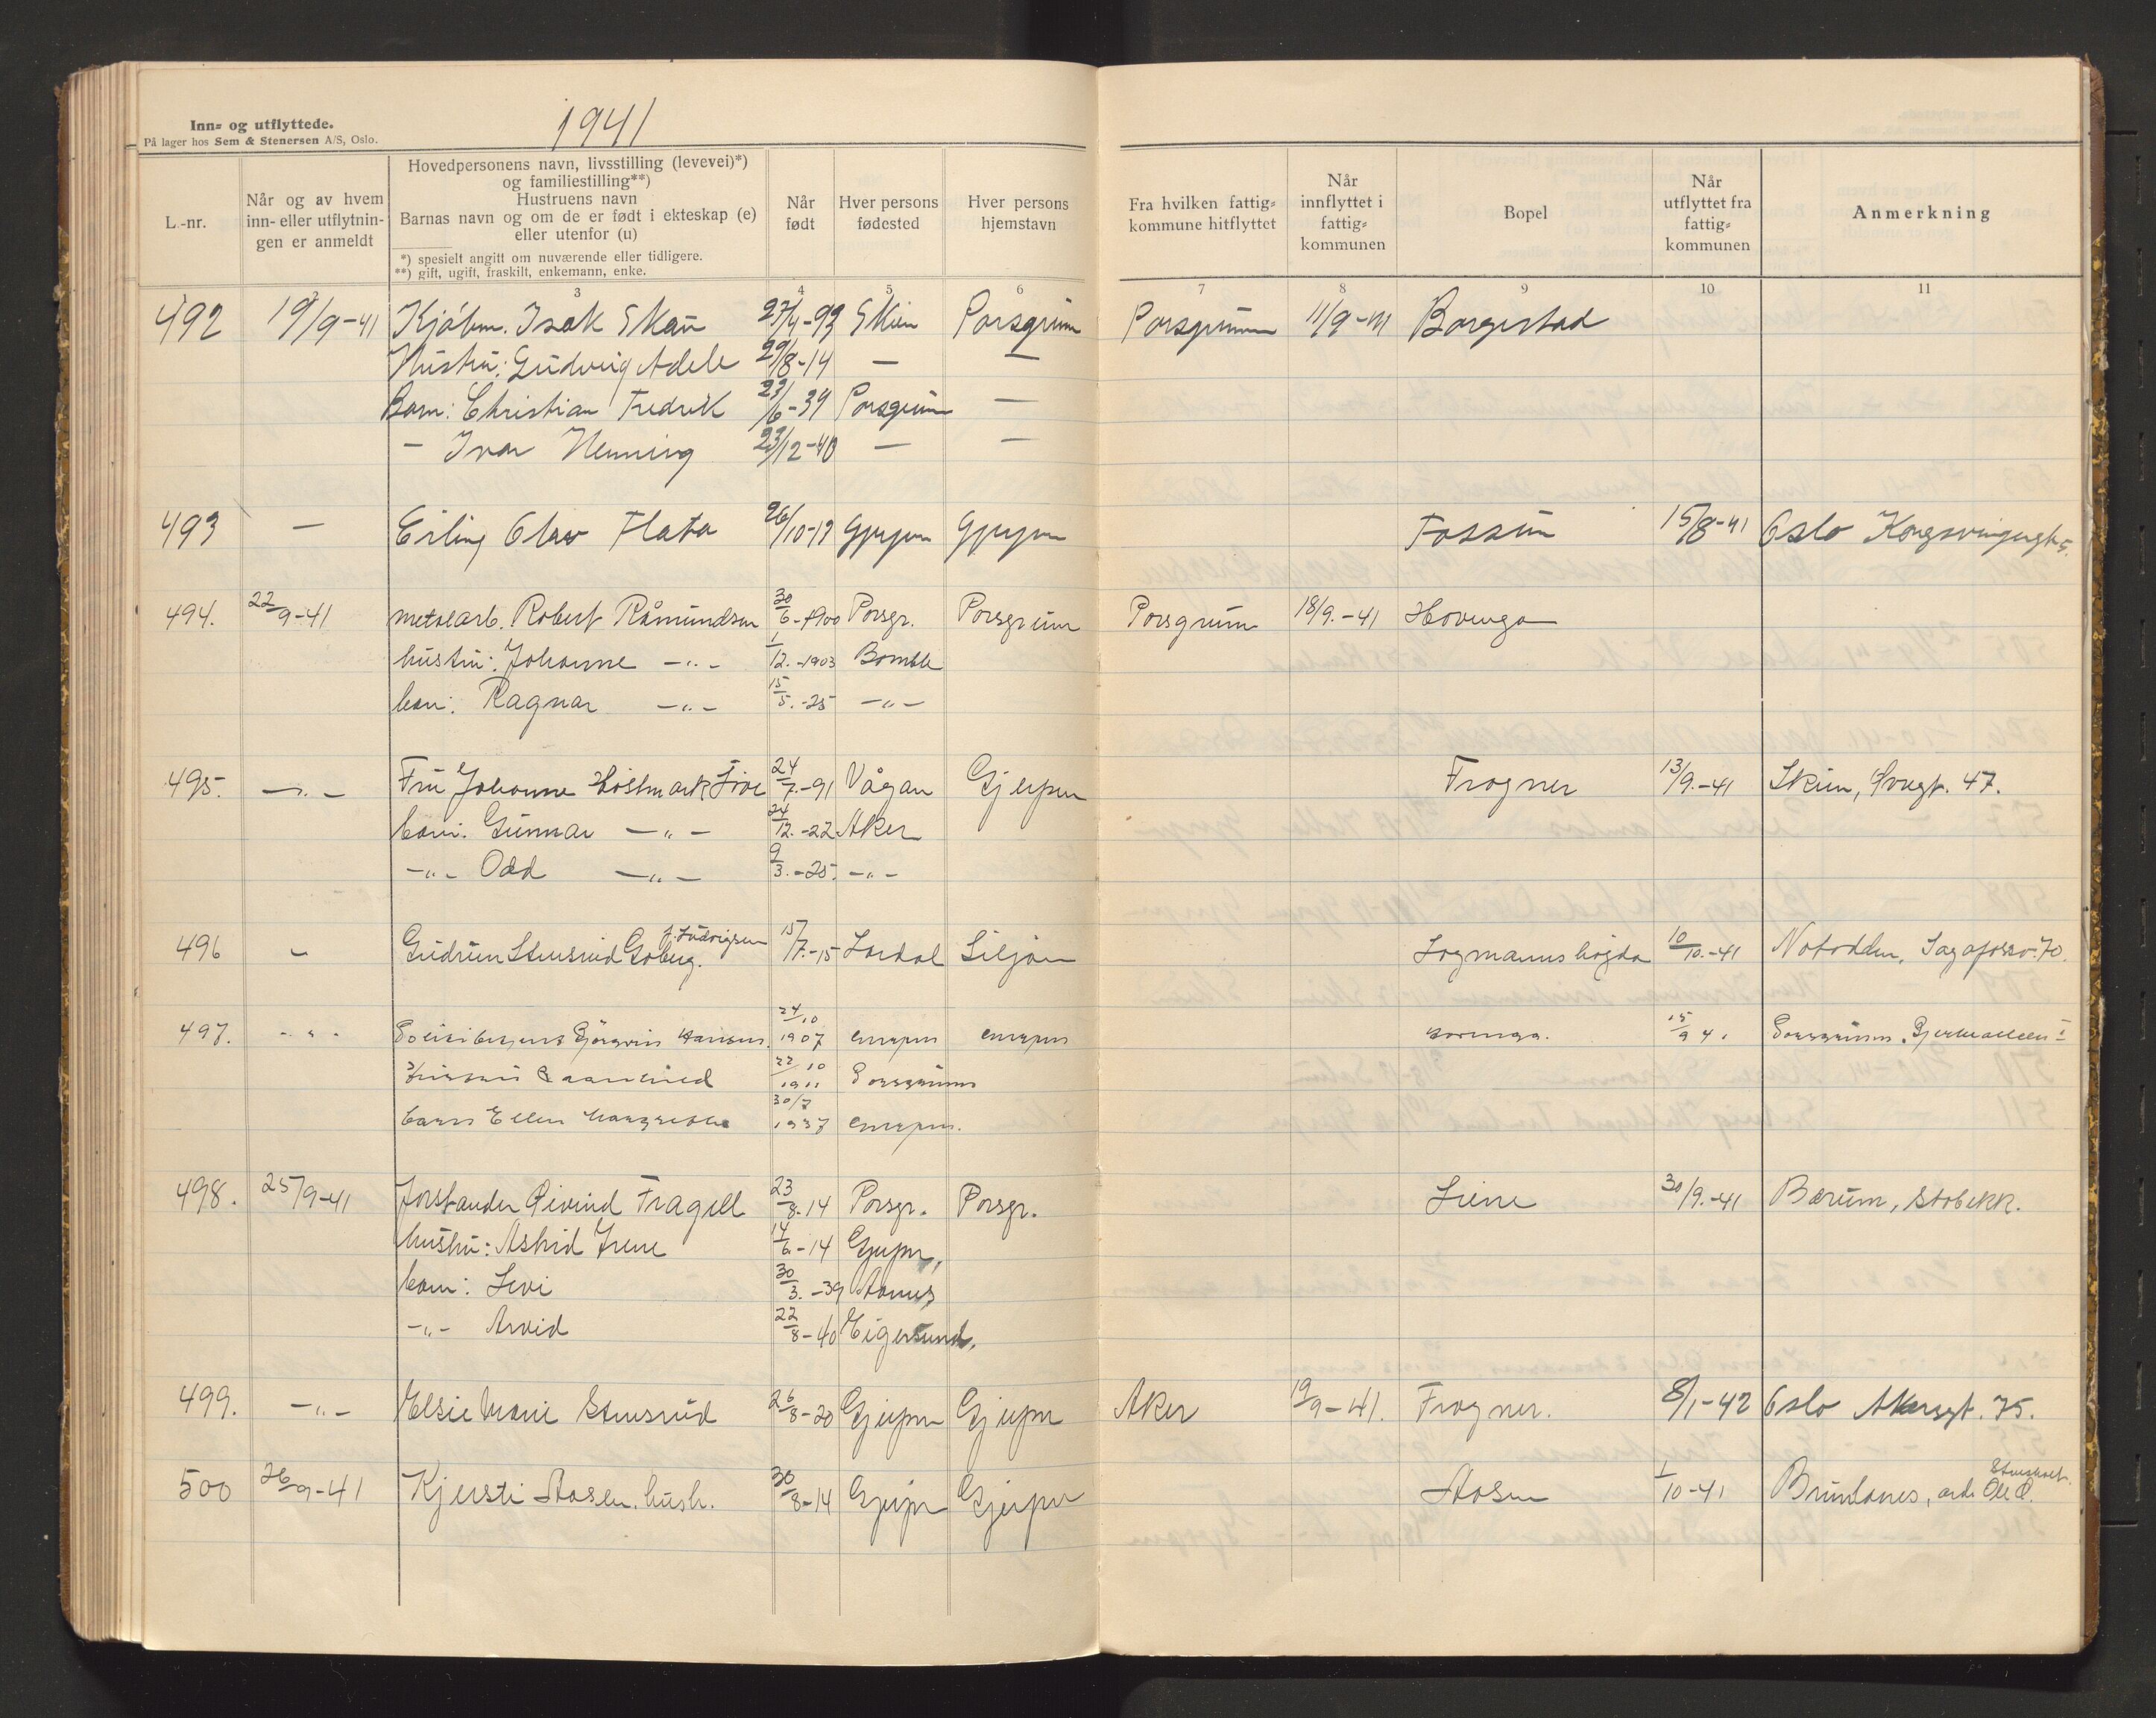 1941
Inn- og utflyttede.
På lager hos Sem & Stenersen A/S, Oslo.
L.-nr.
Når og av hvem
inn- eller utflytnin-
gen er anmeldt
Hovedpersonens navn, livsstilling (levevei)*)
og familiestilling**)
Hustruens navn
Barnas navn og om de er født i ekteskap (e)
eller utenfor (u)
*) spesielt angitt om nuværende eller tidligere.
**) gift, ugift, fraskilt, enkemann, enke.
Når
født
Hver persons
fødested
Hver persons
hjemstavn
Fra hvilken fattig-
kommune hitflyttet
Når
innflyttet i
fattig-
kommunen
Bopel
Når
utflyttet fra
fattig-
kommunen
Anmerkning
3 4 5 6 7 8 9 10 11
492 19/9-41 Kjøbm. Isak Skau 27/4-93 Skien Porsgrunn Porsgrunn 11/9-41 Borgestad
Hustru: Gudveig Adele 29/8-14 — —
Barn: Christian Fredrik 23/6-39 Porsgrunn —
— Ivar Henning 23/12-40 — —
493 — Erling Olav Flata 26/10-19 Gjerpen Gjerpen Fossum 15/8-41 Oslo Kongsvingergt. 5.
494. 22/9-41 metalarb. Robert Råmundsen 30/6-1900 Porsgr. Porsgrunn Porsgrunn 18/9.-41 Hovenga
hustru: Johanne —"— 1/12.-1903 Bamble
barn: Ragnar —"— 15/5.-25 —"—
495. —"— Fru Johanne Høstmark 24/7.-91 Vågan Gjerpen Frogner 13/9.-41 Skien, 47.
barn. Gunnar —"— 24/12.-22 Aker
—"— Odd —"— 9/3.-25. —"—
496 " Gudrun Stensrud Goberg. f. Ludvigsen 15/7.-15 Lardal Siljan Logmannshøgda 10/10.-41 Notodden, Sagafossv. 70.
497. —"— Hansen. 24/10 1907 Gjerpen Gjerpen Hovenga. 15/9 41 Porsgrunn.
Hustru 22/10 1911 Porsgrunn
barn Ellen Margrethe 30/7 1937 Gjerpen.
498. 25/9-41 Forstander Øivind Fragell 23/8-14 Porsgr. Porsgr. Liene 30/9.-41 Bærum, Stabekk.
hustru: Astrid Irene 14/6.-14 Gjerpen,
barn: Levi 30/3.-39
—"— Arvid 22/8-40 Eigersund,
499. —"— Elsie Marie Stensrud 26/8-20 Gjerpen Gjerpen Aker 19/9-41. Frogner. 8/1-42 Oslo Akersgt. 75.
500 26/9-41 Kjersti Aasen, hush. 30/8-14 Gjerpen Gjerpen Aasen 1/10-41 Brunlanes, adr. Ole O. Stensholt.